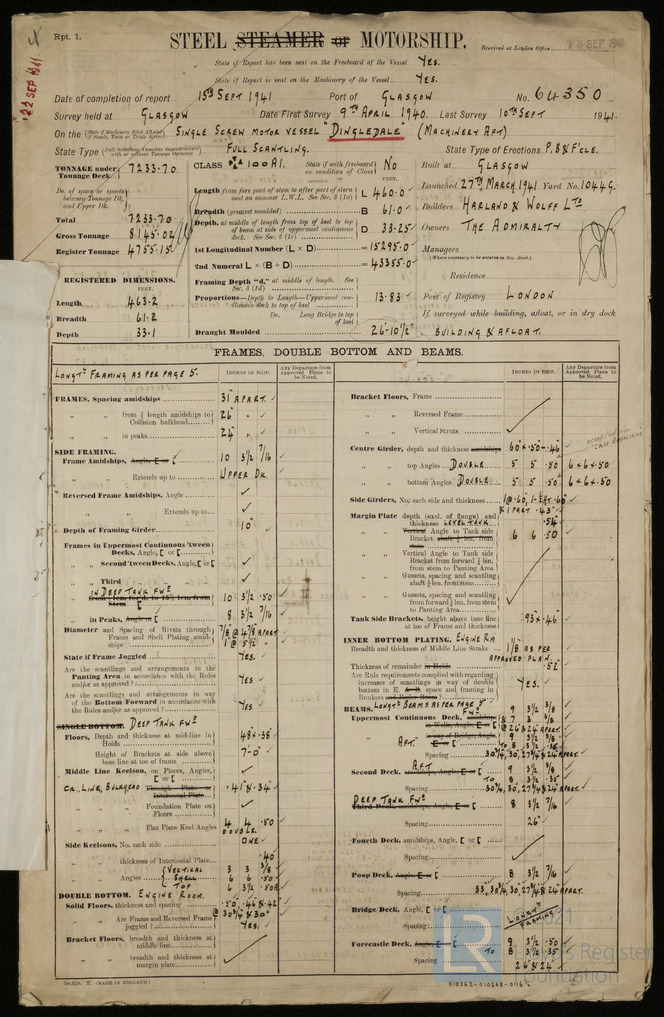 Rpt. 1.
STEEL STEAMER or MOTORSHIP.
Received at London Office 18 SEP 1941
22 SEP 1941
State if Report has been sent on the Freeboard of the Vessel YES.
State if Report is sent on the Machinery of the Vessel YES.
Date of completion of report 15TH SEPT 1941 Port of GLASGOW No. 64350
Survey held at GLASGOW Date First Survey 9TH APRIL 1940. Last Survey 10TH SEPT 1941.
On the SINGLE SCREW MOTOR VESSEL "DINGLEDALE" (MACHINERY AFT)
State Type FULL SCANTLING. State Type of Erections P, B & F'CLE.
TONNAGE under Tonnage Deck 7233.70
CLASS 100 A1. State if (with freeboard) as condition of Class No
Built at GLASGOW
Launched 27TH MARCH 1941 Yard No. 1044G.
Total 7233.70
Gross Tonnage 8145.02
Register Tonnage 4755.15
Length from fore part of stem to after part of stern L 460.0
Breadth (greatest moulded) B 61.0
Depth, at middle of length from top of keel to top of beam at side of uppermost continuous deck D 33.25
1st Longitudinal Number (L × D) = 15295.0
2nd Numeral L × (B + D) = 43355.0
Framing Depth "d," at middle of length. See Sec. 3 (1d)
Proportions—Depth to Length—Uppermost continuous deck to top of keel 13.83
Do. Long Bridge to top of keel
Draught Moulded 26-10½"
Builders HARLAND & WOLFF LTD
Owners THE ADMIRALTY
Managers
Residence
Port of Registry LONDON
If surveyed while building, afloat, or in dry dock
BUILDING & AFLOAT.
REGISTERED DIMENSIONS.
FEET.
Length 463.2
Breadth 61.2
Depth 33.1
FRAMES, DOUBLE BOTTOM AND BEAMS.
LONGTL FRAMING AS PER PAGE 5.
INCHES IN SHIP.
Any Departure from Approved Plans to be Noted.
FRAMES, Spacing amidships 31" APART.
" " from ⅗ length amidships to Collision bulkhead 26"
" " in peaks 24"
SIDE FRAMING.
Frame Amidships, Angle, 10 3½ 7/16
" " Extends up to UPPER DK.
Reversed Frame Amidships, Angle
" " Extends up to
Depth of Framing Girder 10"
Frames in Uppermost Continuous 'tween Decks, Angle, [ or [
" Second 'tween Decks, Angle, [ or [
" Third
IN DEEP TANK FWD 10 3½ .50
" in Peaks, Angle 8 3½ 7/16
Diameter and Spacing of Rivets through Frame and Shell Plating amidships 7/8 @ 4⅞ APART
State if Frame Joggled YES.
Are the scantlings and arrangements in the Panting Area in accordance with the Rules and/or as approved? YES.
Are the scantlings and arrangements in way of the Bottom Forward in accordance with the Rules and/or as approved? YES
SINGLE BOTTOM. DEEP TANK FWD
Floors, Depth and thickness at mid-line in Holds 48 × .38
Height of Brackets at side above base line at toe of frame 7'-0"
Middle Line Keelson, on Floors, Angles, [ or [
CR. LINE BULKHEAD Through Plate or Intercostal Plate .41 & .34
" " Foundation Plate on Floors
" " Flat Plate Keel Angles 4 4 .50 DOUBLE
Side Keelsons, No. each side ONE
" " thickness of Intercostal Plate .40
" " Angles VERTICAL 3 3 3/8
SHELL 6 6 .50
TOP 6 3½ .50
DOUBLE BOTTOM. ENGINE ROOM.
Solid Floors, thickness and spacing .50, .46 & .42 @ 30¾ & 30"
" " Are Frame and Reversed Frame joggled? YES.
Bracket Floors, breadth and thickness at middle line
" " breadth and thickness at margin plate
INCHES IN SHIP.
Any Departure from Approved Plans to be Noted.
Bracket Floors, Frame
" " Reversed Frame
" " Vertical Struts
Centre Girder, depth and thickness amidships 60" × .50 - .46
" " top Angles DOUBLE 5 5 .50 6 × 6 × .50
" " bottom Angles DOUBLE 5 5 .50 6 × 6 × .50
Side Girders, No. each side and thickness
Margin Plate depth (excl. of flange) and thickness LEVEL TANK .54
" " Vertical Angle to Tank side Bracket 6 6 .50
" " Vertical Angle to Tank side Bracket from forward ¼ len. from stem to Panting Area
" " Gussets, spacing and scantling abaft ¼ len. from stem
" " Gussets, spacing and scantling from forward ¼ len. from stem to Panting Area
Tank Side Brackets, height above base line at toe of Frame and thickness 93" × .46
INNER BOTTOM PLATING. ENGINE RM
Breadth and thickness of Middle Line Strake 1⅛ AS PER APPROVED PLAN
Thickness of remainder in Holds .52
Are Rule requirements complied with regarding increases of scantlings in way of double bottom in E. & B. space and framing in Bunkers and Boiler Room? YES.
BEAMS. LONGTL BEAMS AS PER PAGE 5
Uppermost Continuous Deck, FWD 9 3½ 3/8
AFT.
Spacing 30¾, 30, 27¾ & 24 APART.
Second Deck, AFT 9 3½ 3/8
TO 8 3½ .35
Spacing 30¾, 30, 27¾ & 24 APART
DEEP TANK FWD
Third Deck, amidships, Angle 8 3½ 7/16
Spacing 26"
Fourth Deck, amidships, Angle, [ or [
Spacing
Poop Deck, Angle 8 3½ 7/16
Spacing 33, 30¾, 30, 27¾ & 24 APART.
Bridge Deck, Angle, [ or [
Spacing LONGTL FRAMING.
Forecastle Deck, Angle 9 3½ .50
TO 8 3½ .35
Spacing 26" & 24"
2021
Lloyd's Register
Foundation
LR
010362-010368-0116